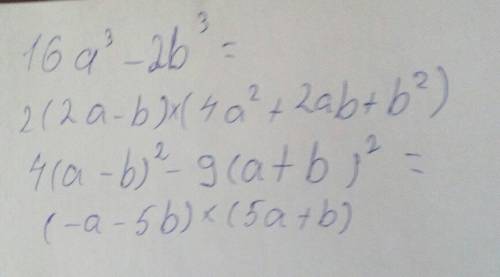 16a³ - 2b³ =
2(2a-b)×(4a²+2ab+b²)
4(a-b)² - 9(a+b)² =
(-a-5b)×(5a+b)